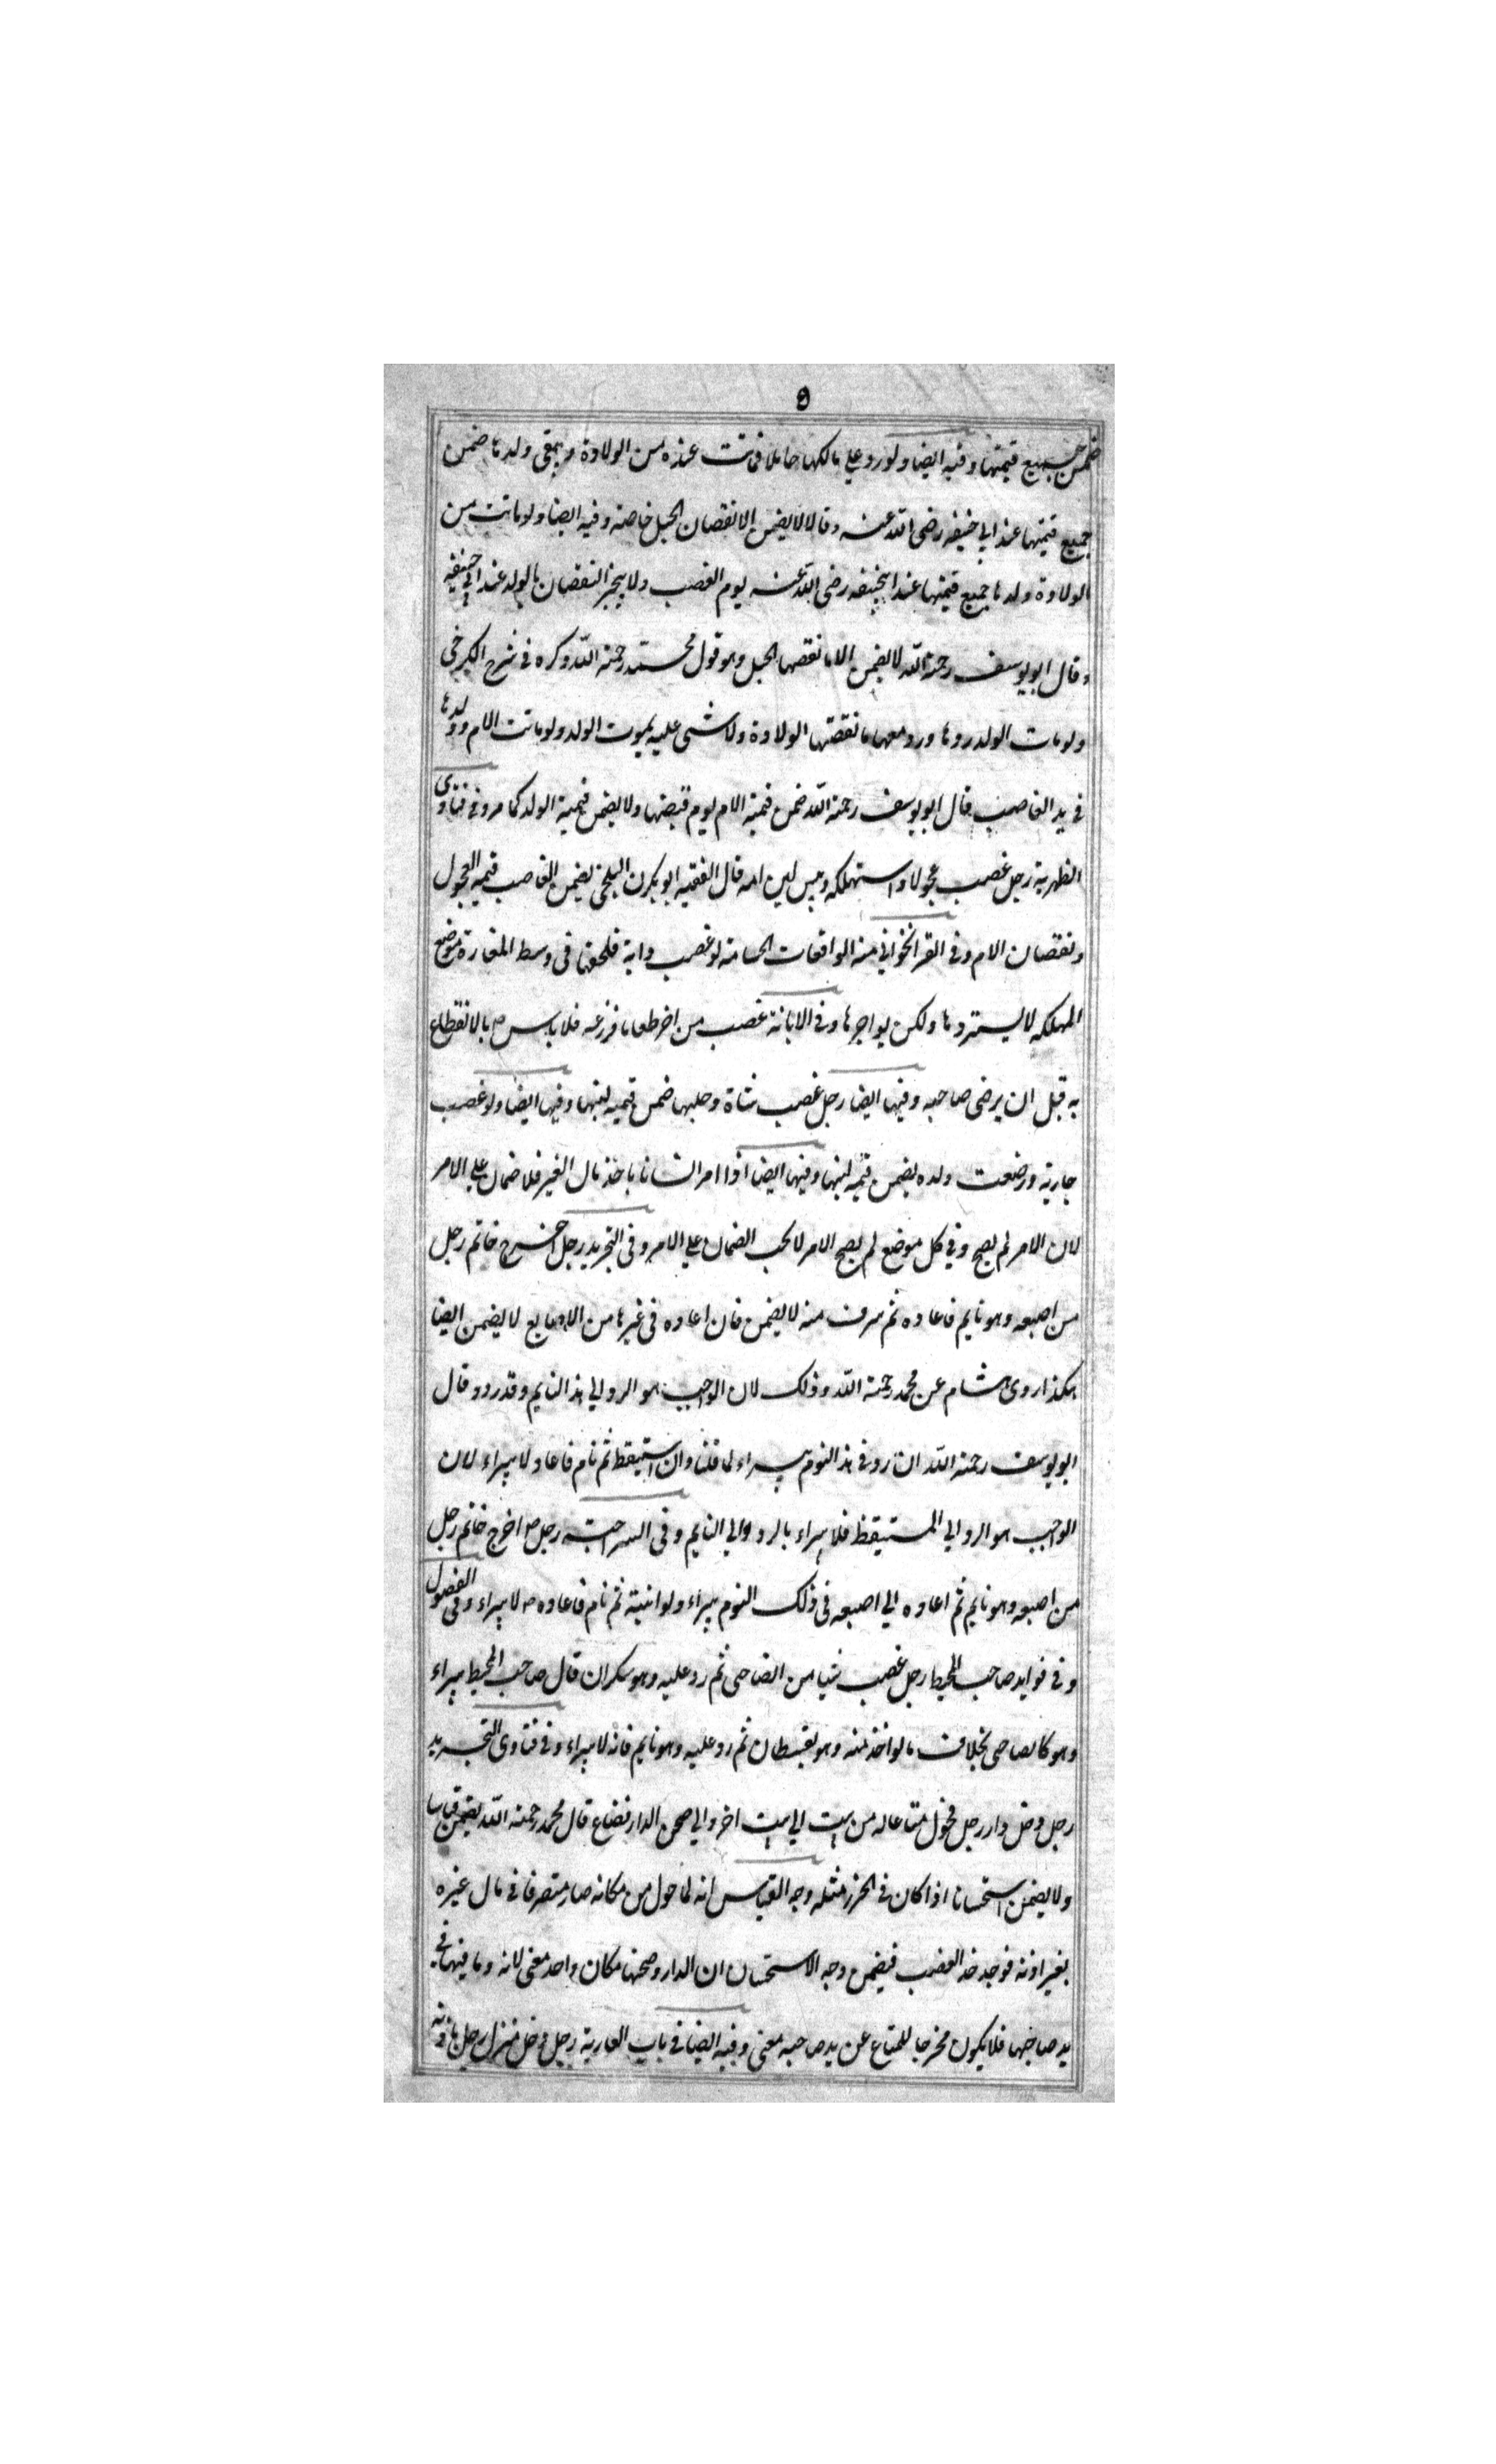 9
ضمن جميع قيمتها وفيه ايضا ولو رد على مالكها حاملا فماتت عنده من الولادة وبقى ولدها ضمن
جميع قيمتها عند ابي حنيفه رضى الله عنه وقالا لا يضمن الا نقصان الحبل خاصة وفيه ايضا ولو ماتت من
الولادة ولدها جميع قيمتها عند ابيحنيفه رضى الله عنه يوم الغصب ولا يجبر النقصان بالولد عند ابي حنيفه
وقال ابو يوسف رحمة الله لا يضمن الا ما نقصها الحبل وهو قول محمد رحمة الله ذكره في شرح الكرخي
ولو مات الولد ردها ورد معها ما نقصتها الولادة ولا شى عليه بموت الولد ولو ماتت الام وولدها
في يد الغاصب قال ابو يوسف رحمة الله ضمن قيمة الام يوم قبضها ولا يضمن قيمة الولد كما مر وفي فتاوى
الظهرية رجل غصب عجولا واستهلكه ويبس لبن امه قال الفقيه ابو بكرن البلخي يضمن الغاصب قيمه العجول
ونقصان الام وفي القراخواني منه الواقعات الحسامية لو غصب دابة فلحقها في وسط المفازة موضع
المهلكه لا يستردها ولكن يواجرها وفي الابانة غصب من اخر طعاما فزرعه فلا باس بالانقطاع
به قبل ان يرضى صاحبه وفيها ايضا رجل غصب شاة وحلبها ضمن قيمه لبنها وفيها ايضا ولو غصب
جارية ورضعت ولده يضمن قيمه لبنها وفيها ايضا اذا امر انسانا باخذ مال الغير فلا ضمان على الامر
لان الامر لم يصح وفي كل موضع لم يصح الامر لا يجب الضمان على الامر وفى التجريد رجل اخرج خاتم رجل
من اصبعه وهو نايم فاعاده ثم سرق منه لا يضمن فان اعاده في غيرها من الاصابع لا يضمن ايضا
هكذا روى هشام عن محمد رحمة الله وذلك لان الواجب هو الرد الي هذ النايم وقد رد وقال
ابو يوسف رحمة الله ان رد في هذ النوم يبراء لما قلنا وان استيقظ ثم نام فاعاد لا يبراء لان
الواجب هو الرد الي المستيقظ فلا يبراء بالرد الي النايم وفى السراجية رجل اخرج خاتم رجل
من اصبعه وهو نايم ثم اعاده الي اصبعه في ذلك النوم يبراء ولو انتبه ثم نام فاعاده لا يبراء وفى الفصول
وفى فوايد صاحب المحيط رجل غصب شيا من الصاحي ثم رد عليه وهو سكران قال صاحب المحيط يبراء
وهو كالصاحي بخلاف ما لو اخذ منه وهو يقظان ثم رد عليه وهو نايم فانه لا يبراء وفى فتاوى التجريد
رجل دخل دار رجل فحول متاعا له من بيت الي بيت اخر والي صحن الدار فضاع قال محمد رحمة الله يضمن قياسا
ولا يضمن استحسانا اذا كان في الحرز مثله وجه القياس انه لما حول من مكانه صار متصرفا في مال غيره
بغير اذنه فوجد حد الغصب فيضمن وجه الاستحسان ان الدار وصحنها مكان واحد معنى لانه وما فيها في
يد صاحبها فلا يكون مخرجا للمتاع عن يد صاحبه معنى وفيه ايضا في باب العارية رجل دخل منزل رجل باذنه